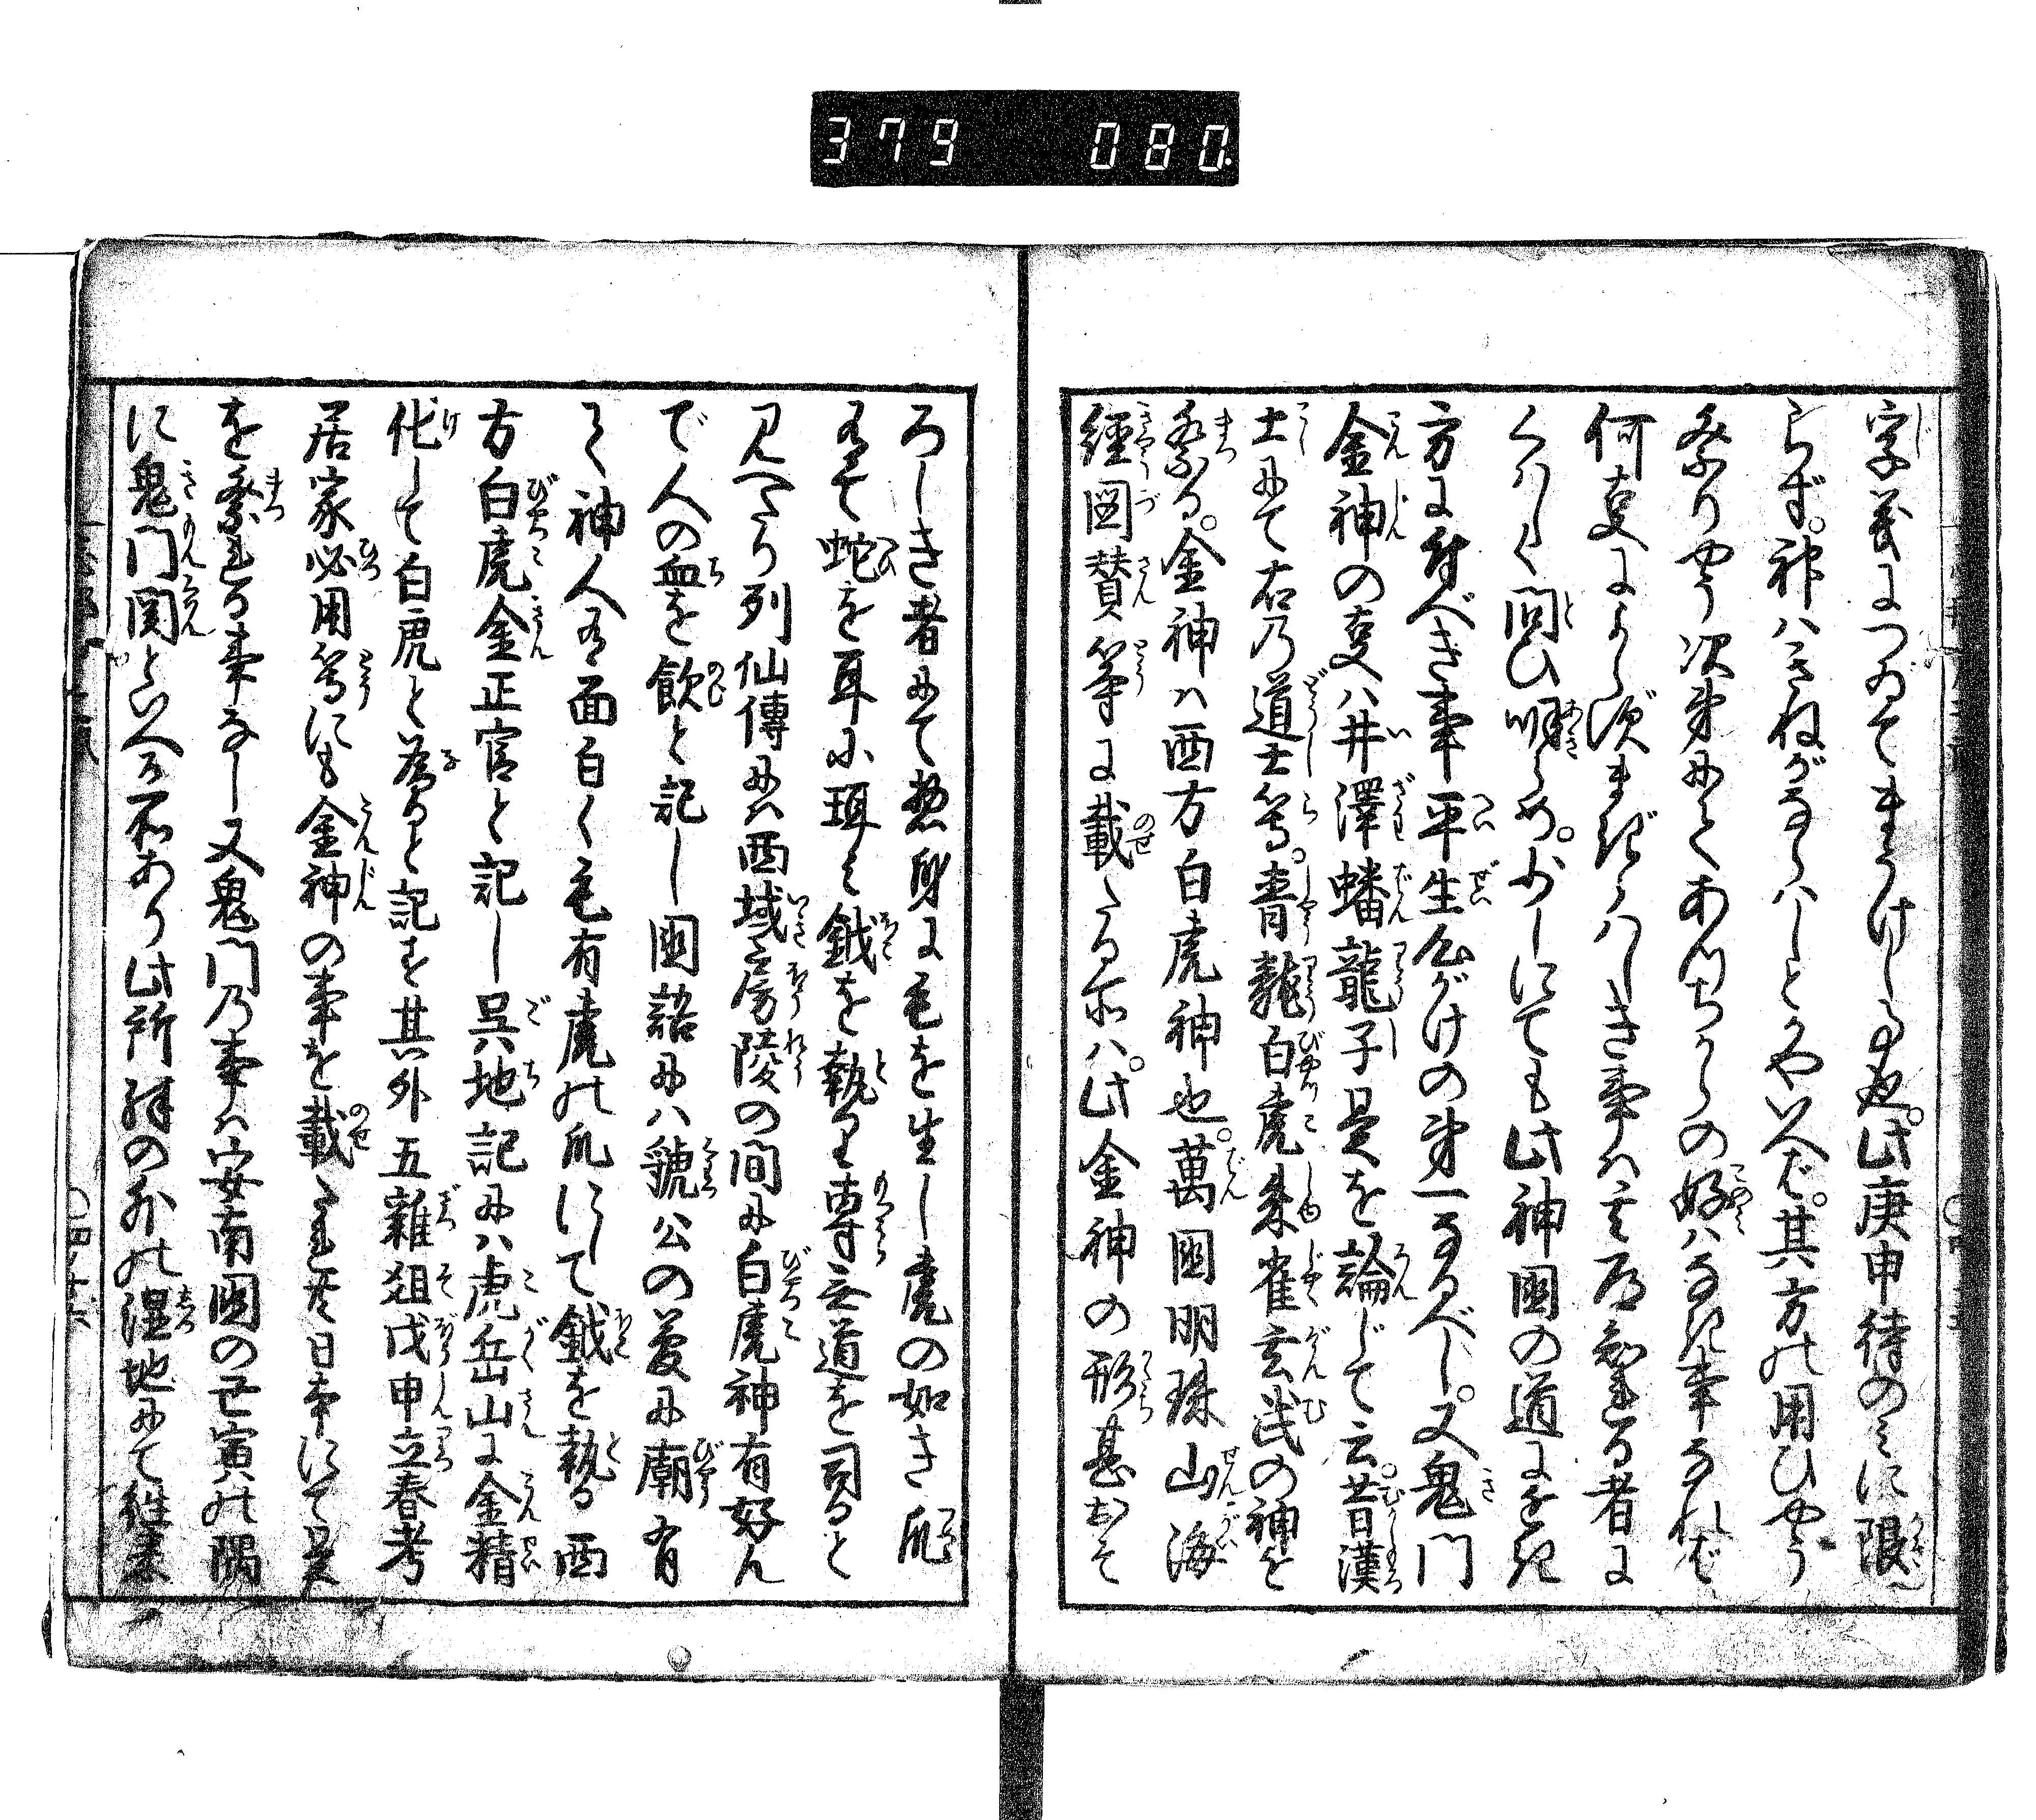 379 080
字義につゐてまうけし名也。此庚申待のミに限
らず。神ハきねがならハしとかやいへど。其方の用ひやう
祭りやう次第にてあつちからの好ハなき事なれど
何事によらず疑ハしき事ハ其道知れる者に
くハしく問ひ明らめ。少しにても此神国の道にそむき
方に有べき事平生心がけの第一なるべし。又鬼門
金神の事ハ井澤蟠龍子是を論じて云。昔漢
土にて右の道士等。青龍白虎朱雀玄武の神を
祭る。金神ハ西方白虎神也。萬國明珠山海
經図賛等に載たる所ハ。此金神の形甚おそ
ろしき者にて惣身に毛を生し虎の如き爪
有て蛇を耳に珥ミ鉞を執り専ら道を司ると
見へたり列仙傳にハ西域房陵の間に白虎神有好ん
で人の血を飲と記し國語にハ虢公の夢に廟有
て神人有面白く毛有虎の爪にして鉞を執る西
方白虎金正官と記し呉地記にハ虎岳山に金精
化して白虎と為ると記す其外五雜俎戊申立春考
居家必用等にも金神の事を載たれ共日本にて是
を祭れる事なし又鬼門の事ハ安南國の丑寅の隅
に鬼門関といへる所あり此所殊の外の湿地にて往来